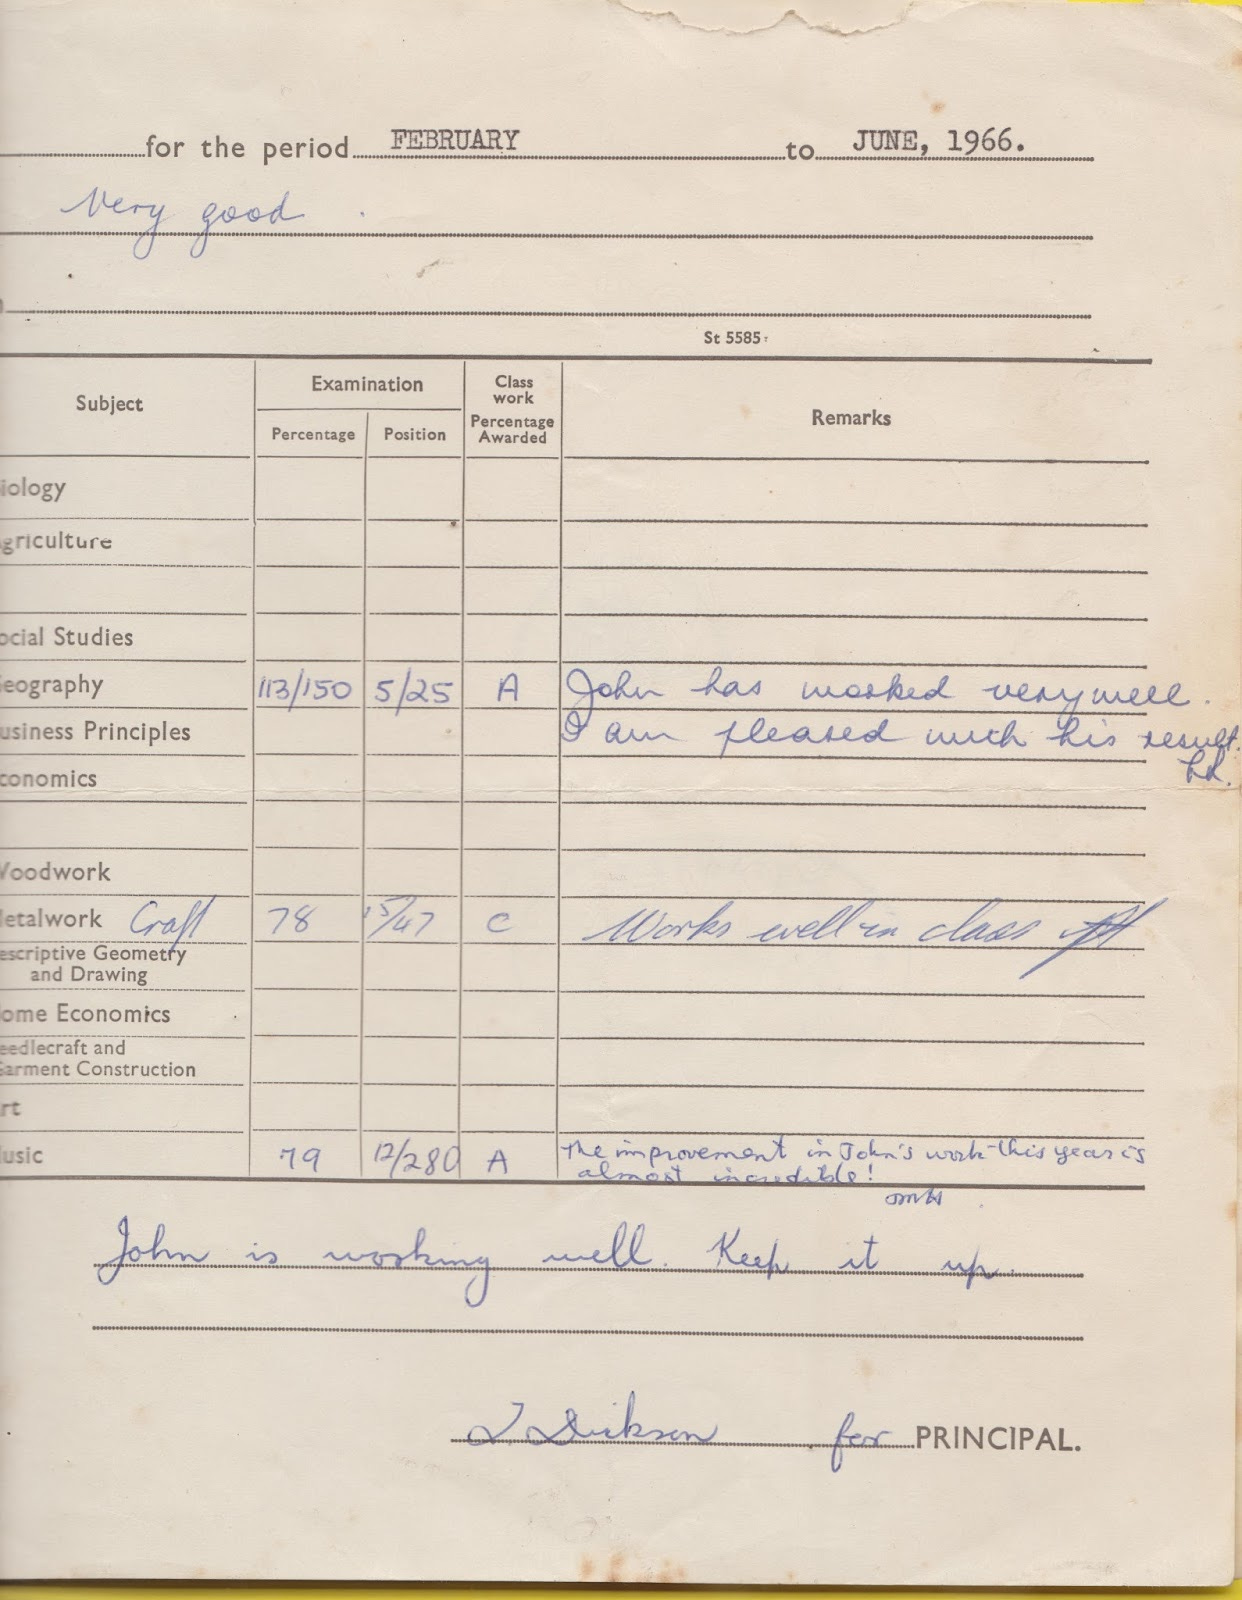 for the period FEBRUARY to JUNE, 1966.
Very good.
St 5585
Subject Examination Class work Percentage Awarded Remarks
Percentage Position
iology
griculture
ocial Studies
eography 113/150 5/25 A John has worked very well.
usiness Principles I am pleased with his result.
conomics
oodwork
etalwork Craft 78 15/47 C Works well in class
escriptive Geometry
and Drawing
ome Economics
eedlecraft and
arment Construction
rt
usic 79 12/280 A The improvement in John's work this year is
almost incredible!
John is working well. Keep it up.
Dickson for PRINCIPAL.